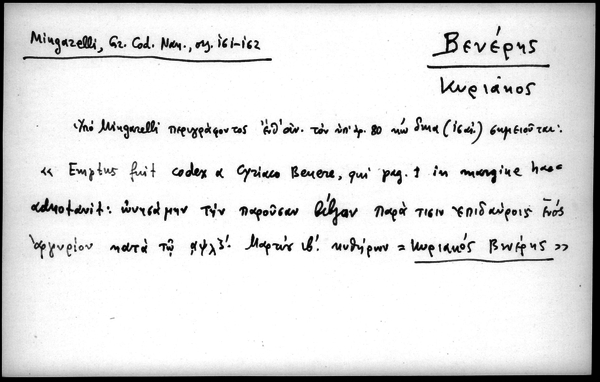 Mingarelli, Gr. Cod. Nan., σελ. 161-162
Βενέρης
Κυριάκος
Ὑπό Mingarelli περιγράφοντος ἐνθ' ἀν. τόν ὑπ' ἀρ. 80 κώδικα σημειοῦται:
« Emptus fuit codex a Cyriaco Benere, qui pag. 1 in margine haec
adnotavit: ὠνησάμην τὴν παροῦσαν βίβλον παρά τισιν Ἐπιδαύροις ἑνός
ἀργυρίου κατὰ τῷ αψλξ'. Μαρτίῳ ιβ'. κυθήρων = Κυριακός Βενέρης »